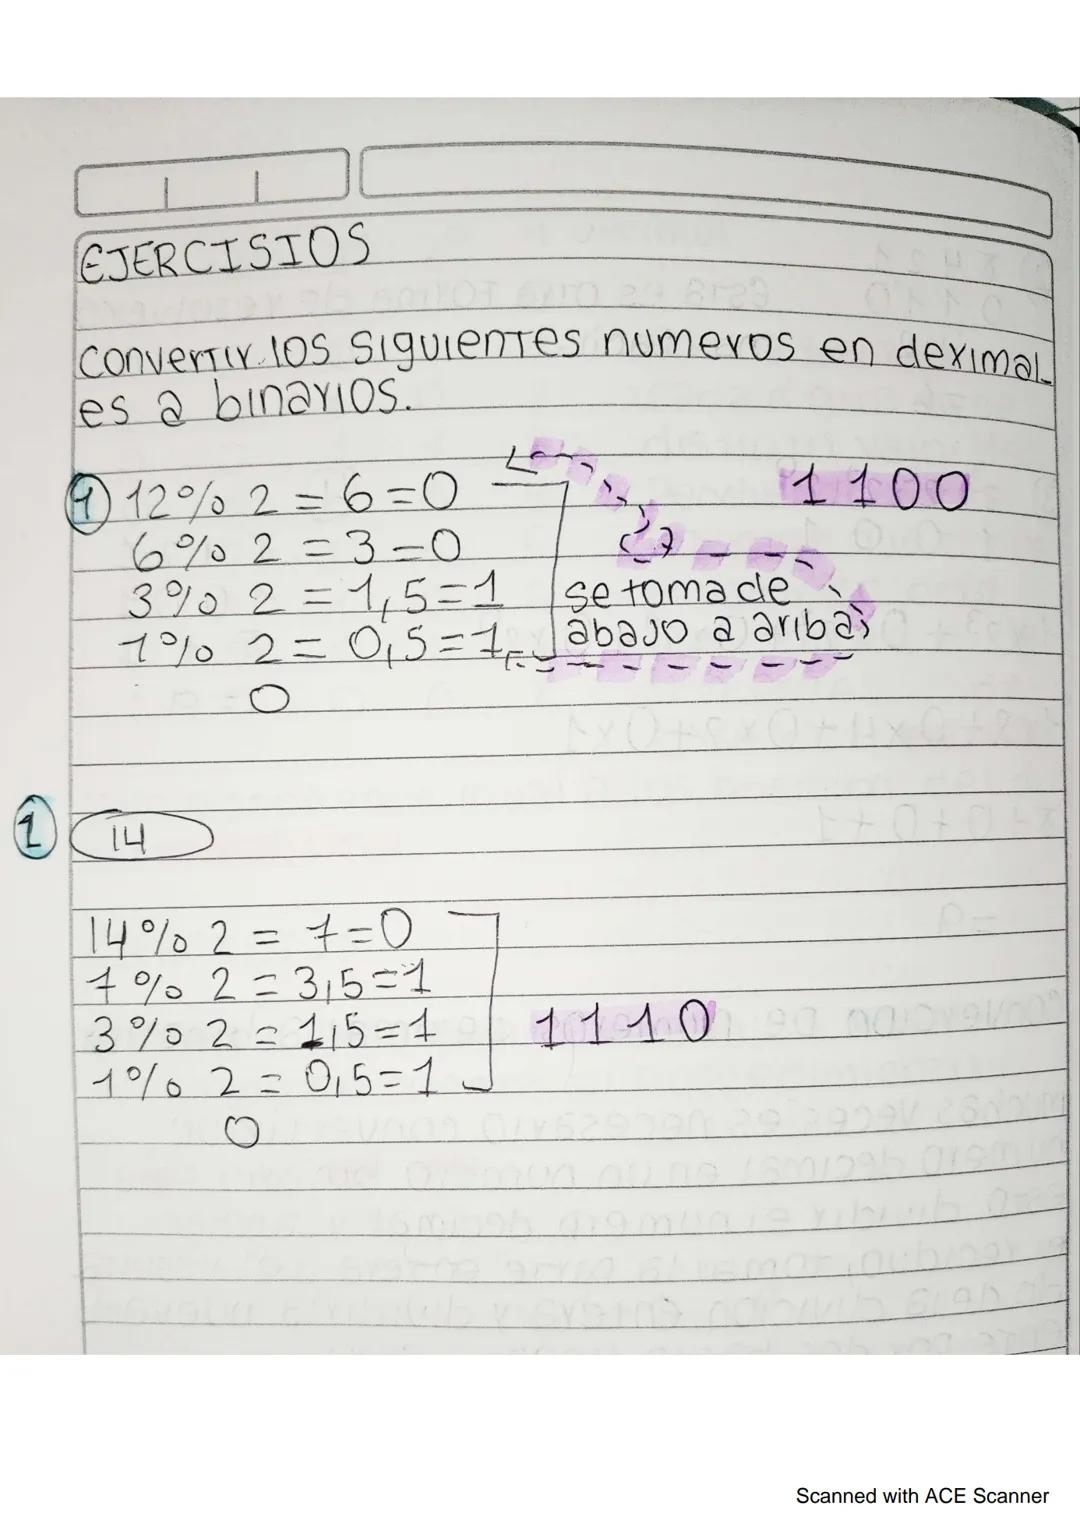 EJERCISIOS
convertir los siguientes numeros en deximal
es a binarios.
1 12 % 2 = 6 = 0
1 1 0 0
6 % 2 = 3 = 0
3 % 2 = 1,5 = 1
1 % 2 = 0,5 = 1
se toma de
abajo a aribas
0
2 14
14 % 2 = 7 = 0
7 % 2 = 3,5 = 1
3 % 2 = 1,5 = 1
1 1 1 0
1 % 2 = 0,5 = 1
0
Scanned with ACE Scanner